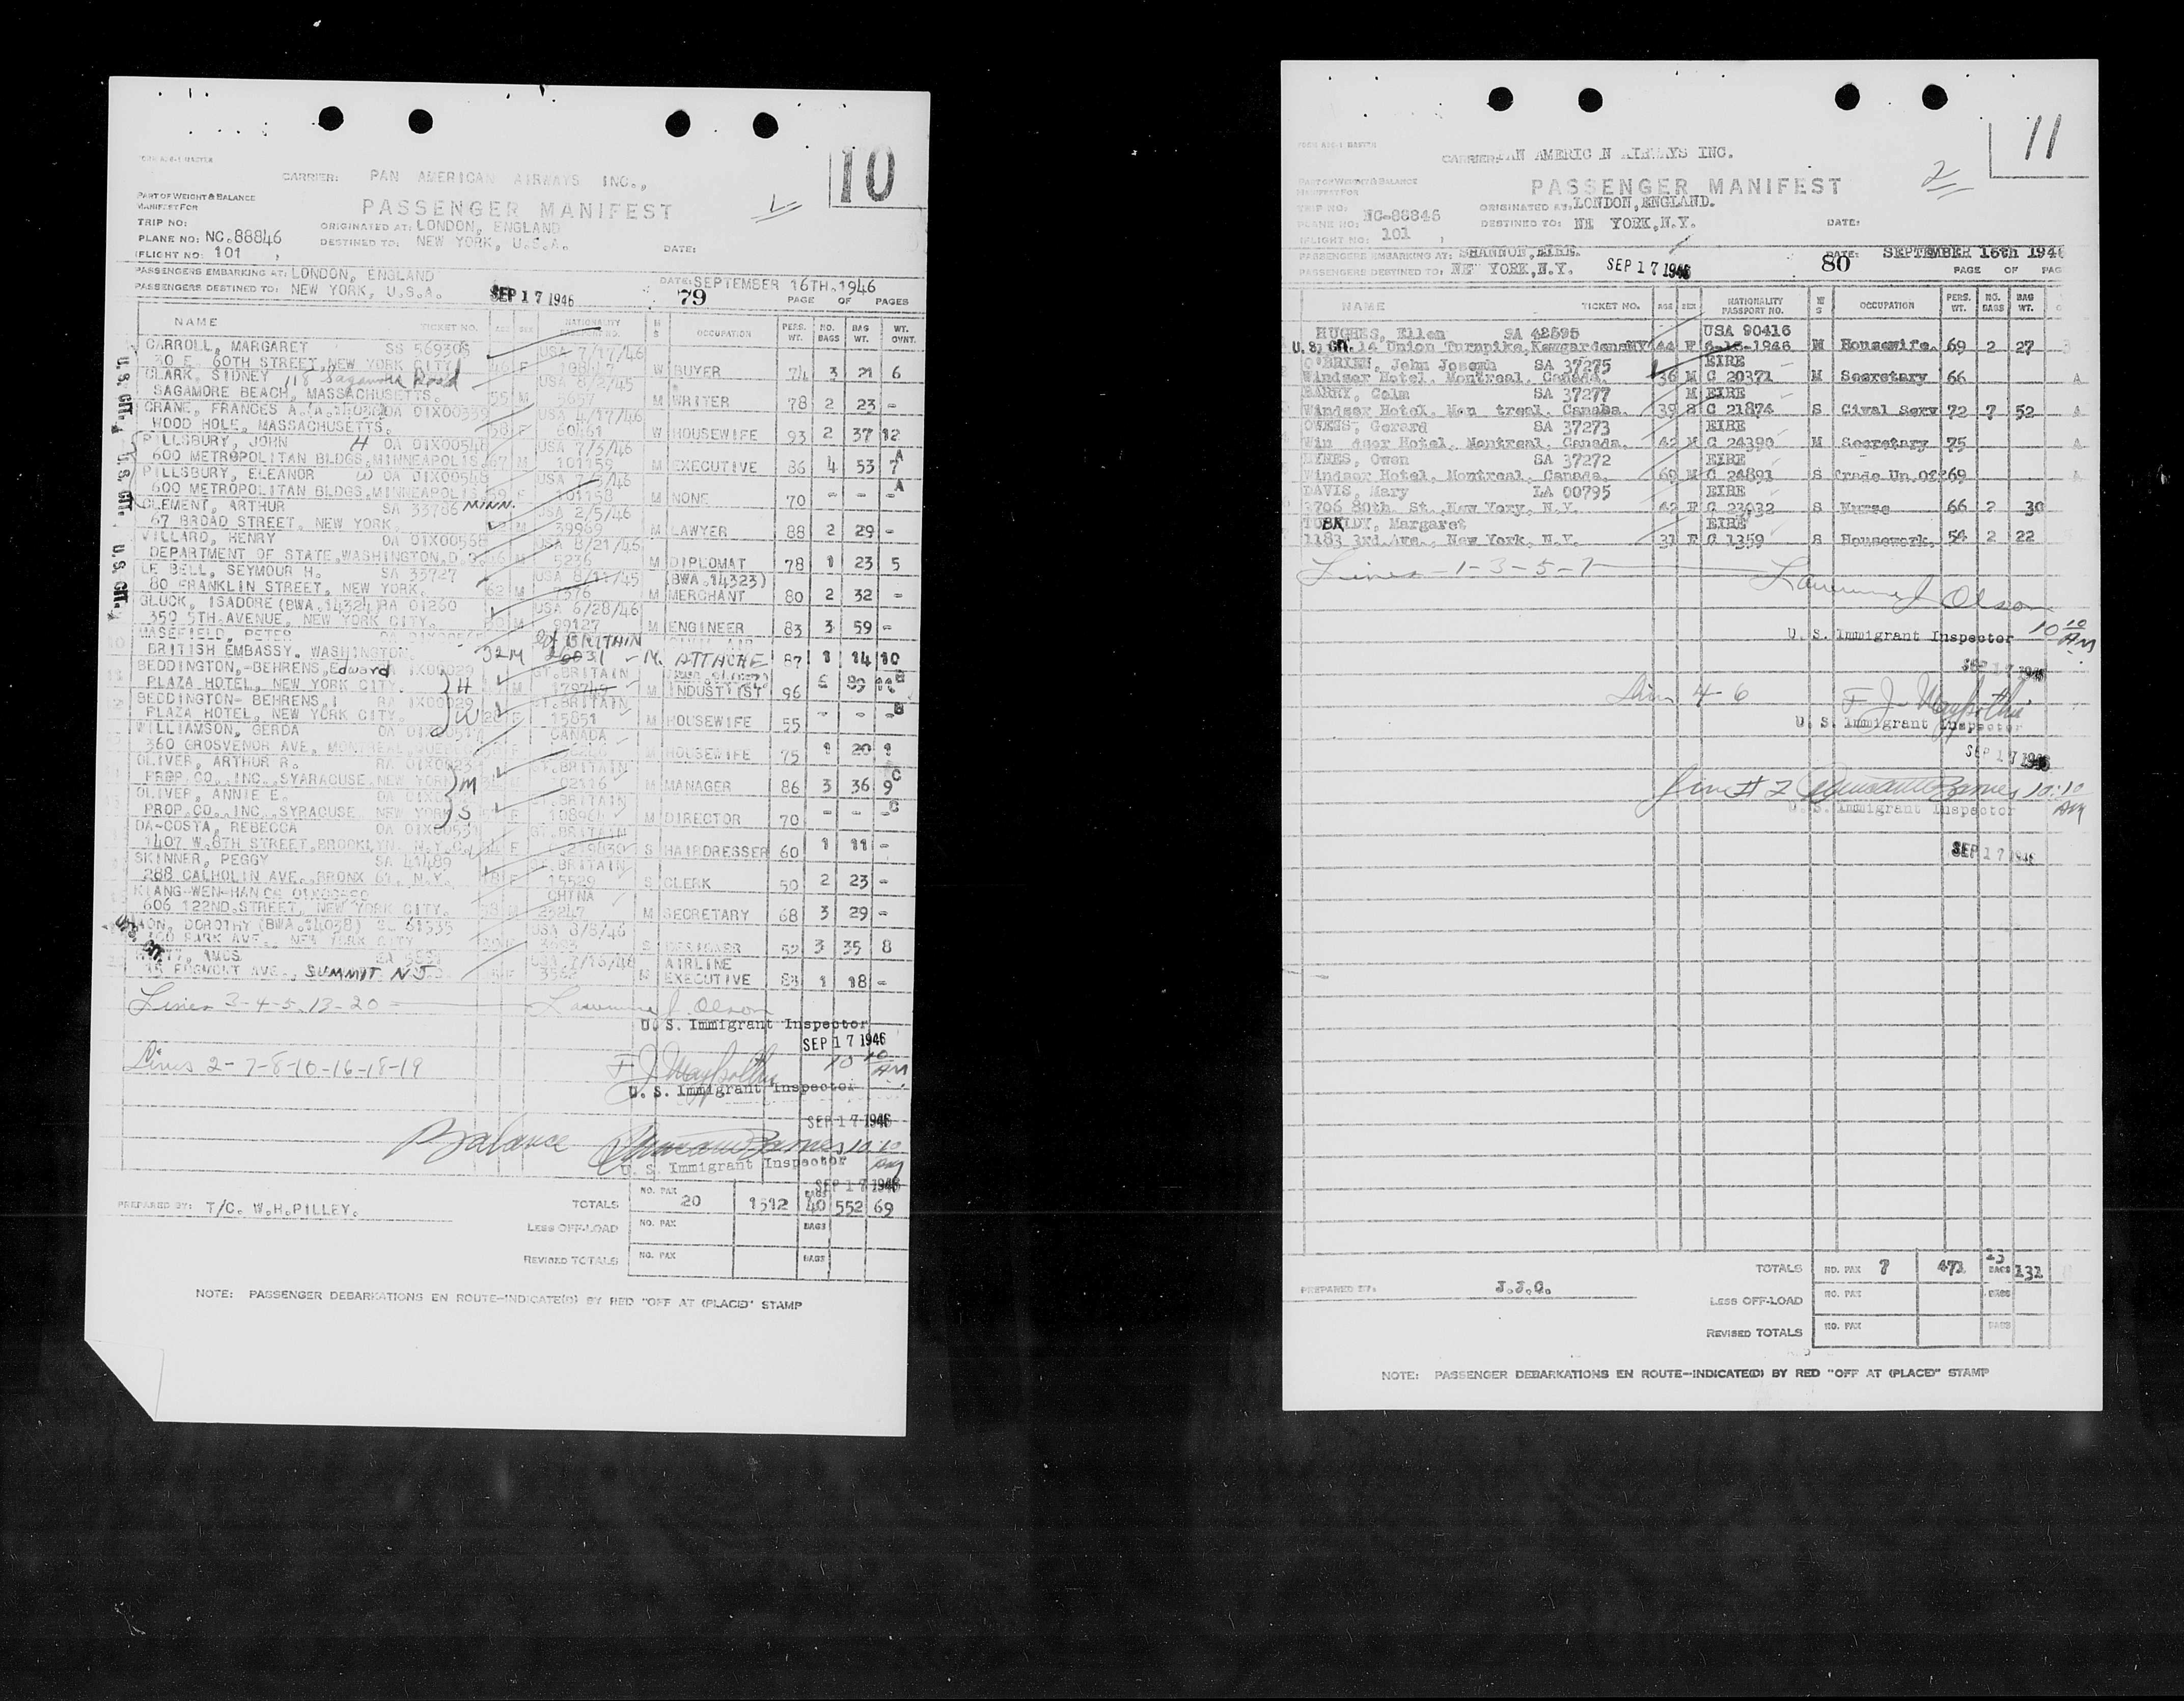 10
CARRIER: PAN AMERICAN AIRWAYS INC.,
PART OF WEIGHT & BALANCE
MANIFEST FOR
PASSENGER MANIFEST
TRIP NO:
PLANE NO: NC.88846
FLIGHT NO: 101
ORIGINATED AT: LONDON, ENGLAND
DESTINED TO: NEW YORK, U.S.A.
DATE:
PASSENGERS EMBARKING AT: LONDON, ENGLAND
DATE: SEPTEMBER 16TH.1946
PASSENGERS DESTINED TO: NEW YORK, U.S.A.
SEP 17 1946
79
PAGE OF PAGES
NAME TICKET NO. AGE SEX NATIONALITY M S OCCUPATION PERS. WT. NO. BAGS BAG WT. WT. OVNT.
CARROLL, MARGARET SS 569308 USA 7/17/46
30 E. 60TH STREET, NEW YORK CITY 46 F 108417 W BUYER 74 3 21 6
CLARK, SIDNEY 118 Sagamore Road USA 8/2/45
SAGAMORE BEACH, MASSACHUSETTS. 55 M W WRITER 78 2 23 -
CRANE, FRANCES A. OA 01X00539 USA 4/17/46
WOOD HOLE, MASSACHUSETTS. 58 F 60461 W HOUSEWIFE 93 2 37 12
PILLSBURY, JOHN H OA 01X00548 USA 7/3/46
600 METROPOLITAN BLDGS, MINNEAPOLIS 67 M 101159 M EXECUTIVE 86 4 53 7 A
PILLSBURY, ELEANOR W OA 01X00548
600 METROPOLITAN BLDGS, MINNEAPOLIS 59 F 101158 M NONE 70 - - - A
CLEMENT, ARTHUR SA 33786 MINN. USA 2/5/46
67 BROAD STREET, NEW YORK. M 39969 M LAWYER 88 2 29 -
VILLARD, HENRY OA 01X00568 USA 8/21/46
DEPARTMENT OF STATE, WASHINGTON, D.C. 46 M 5236 M DIPLOMAT 78 1 23 5
LE BELL, SEYMOUR H. SA 33727 USA 8/11/45 (BWA.14323)
80 FRANKLIN STREET, NEW YORK. 62 M 7376 M MERCHANT 80 2 32 -
GLUCK, ISADORE (BWA.14324) RA 01260 USA 6/28/46
350 5TH.AVENUE, NEW YORK CITY. M 99127 M ENGINEER 83 3 59 -
MASEFIELD, PETER Gt BRITAIN CIVIL AIR
BRITISH EMBASSY. WASHINGTON. 32 M 26031 M. ATTACHE 87 1 14 10
BEDDINGTON,-BEHRENS, Edward 1X00029 GT.BRITAIN
PLAZA HOTEL, NEW YORK CITY. H M M INDUST IST 96 B
BEDDINGTON- BEHRENS, RA 1X00029 GT.BRITAIN
PLAZA HOTEL, NEW YORK CITY. W F 15851 M HOUSEWIFE 55 - - - B
WILLIAMSON, GERDA OA CANADA
360 GROSVENOR AVE, MONTREAL, QUEBEC F M HOUSEWIFE 75 1 20 1
OLIVER, ARTHUR R. GT.BRITAIN
PROP.CO., INC., SYARACUSE, NEW YORK M M MANAGER 86 3 36 9 C
OLIVER, ANNIE E. GT.BRITAIN
PROP.CO., INC., SYRACUSE NEW YORK S F M DIRECTOR 70 - - - C
DA-COSTA, REBECCA OA 01X00531 GT.BRITAIN
1407 W.8TH STREET, BROOKLYN. N.Y. F S HAIRDRESSER 60 1 11 -
SKINNER, PEGGY SA 41489 GT.BRITAIN
288 CALHOLIN AVE., BRONX 61, N.Y. 18 F S CLERK 50 2 23 -
KIANG-WEN-HAN CHINA
606 122ND.STREET, NEW YORK CITY. 58 M 25247 M SECRETARY 68 3 29 -
DOROTHY (BWA.14038) USA 8/8/46
PARK AVE., NEW YORK CITY F S DESIGNER 52 3 35 8
AMOS AIRLINE
EDGMONT AVE., SUMMIT N.J. M EXECUTIVE 83 1 18 -
U. S. CIT.
U. S. CIT.
U. S. CIT.
Lines 3-4-5-13-20 Lawrence J. Olson
U. S. Immigrant Inspector
SEP 17 1946
10 10 AM
Lines 2-7-8-10-16-18-19
U. S. Immigrant Inspector
SEP 17 1946
Balance 10:10 AM
U. S. Immigrant Inspector
SEP 17 1946
PREPARED BY: T/C. W.H.PILLEY.
TOTALS NO. PAX 20 1512 BAGS 40 552 69
LESS OFF-LOAD NO. PAX BAGS
REVISED TOTALS NO. PAX BAGS
NOTE: PASSENGER DEBARKATIONS EN ROUTE-INDICATE(D) BY RED "OFF AT (PLACE)" STAMP
11
2
CARRIER: PAN AMERIC N AIRWAYS INC.
PART OF WEIGHT & BALANCE
MANIFEST FOR
PASSENGER MANIFEST
TRIP NO:
PLANE NO: NC-88846
FLIGHT NO: 101
ORIGINATED AT: LONDON,ENGLAND.
DESTINED TO: NE YORK,N.Y.
DATE:
PASSENGERS EMBARKING AT: SHANNON,EIRE.
DATE: SEPTEMBER 16th 1946
PASSENGERS DESTINED TO: NE YORK,N.Y.
SEP 17 1946
80
PAGE OF PAG
NAME TICKET NO. AGE SEX NATIONALITY PASSPORT NO. M S OCCUPATION PERS. WT. NO. BAGS BAG WT.
HUGHES, Ellen SA 42595 USA 90416
U. S. CIT. 14 Union Turnpike, KewgardensNY 44 F 6-18-1946 M Housewife. 69 2 27
O'BRIEN, John Joseph SA 37275 EIRE
Windsor Hotel, Montreal, Canada. 36 M C 20371 M Secretary 66 A
BARRY, Colm SA 37277 M EIRE
Windsor Hotel, Mon treal, Canaba. 39 S C 21874 S Cival Serv 72 7 52 A
OWENS, Gerard SA 37273 EIRE
Win dsor Hotel, Montreal, Canada. 42 M C 24390 M Secretary 75 A
HYNES, Owen SA 37272 EIRE
Windsor Hotel, Montreal, Canada. 69 M C 24891 S Trade Un.Off 69 A
DAVIS, Mary LA 00795 EIRE
3706 80th. St.,New Yory, N.Y. 42 F C 23032 S Nurse 66 2 30
Margaret EIRE
1183 3rd.Ave., New York, N.Y. 31 F C 1359 S Housework. 54 2 22
Lines 1-3-5-7 Lawrence J Olson
U. S. Immigrant Inspector 10 10 AM
SEP 17 1946
Lines 4-6
U. S. Immigrant Inspector
SEP 17 1946
Line # 2 10:10 AM
U. S. Immigrant Inspector
SEP 17 1946
PREPARED BY: J.J.O.
TOTALS NO. PAX 7 471 13 BAGS 131
LESS OFF-LOAD NO. PAX BAGS
REVISED TOTALS NO. PAX BAGS
NOTE: PASSENGER DEBARKATIONS EN ROUTE-INDICATE(D) BY RED "OFF AT (PLACE)" STAMP